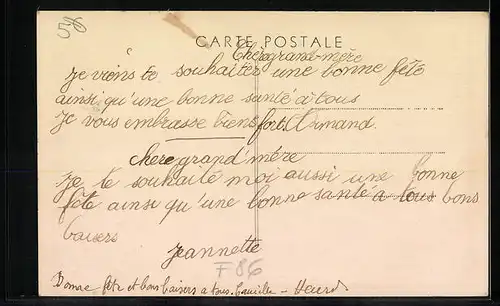 58
CARTE POSTALE
Chère grand-mère
je viens te souhaiter une bonne fête
ainsi qu'une bonne santé à tous
Je vous embrasse biens fort. Armand.
chere grand mère
Je te souhaité moi aussi une bonne
fête ainsi qu'une bonne santé a tous bons
baisers
Jeannette
F86
Bonne fête et bons baisers a tous.